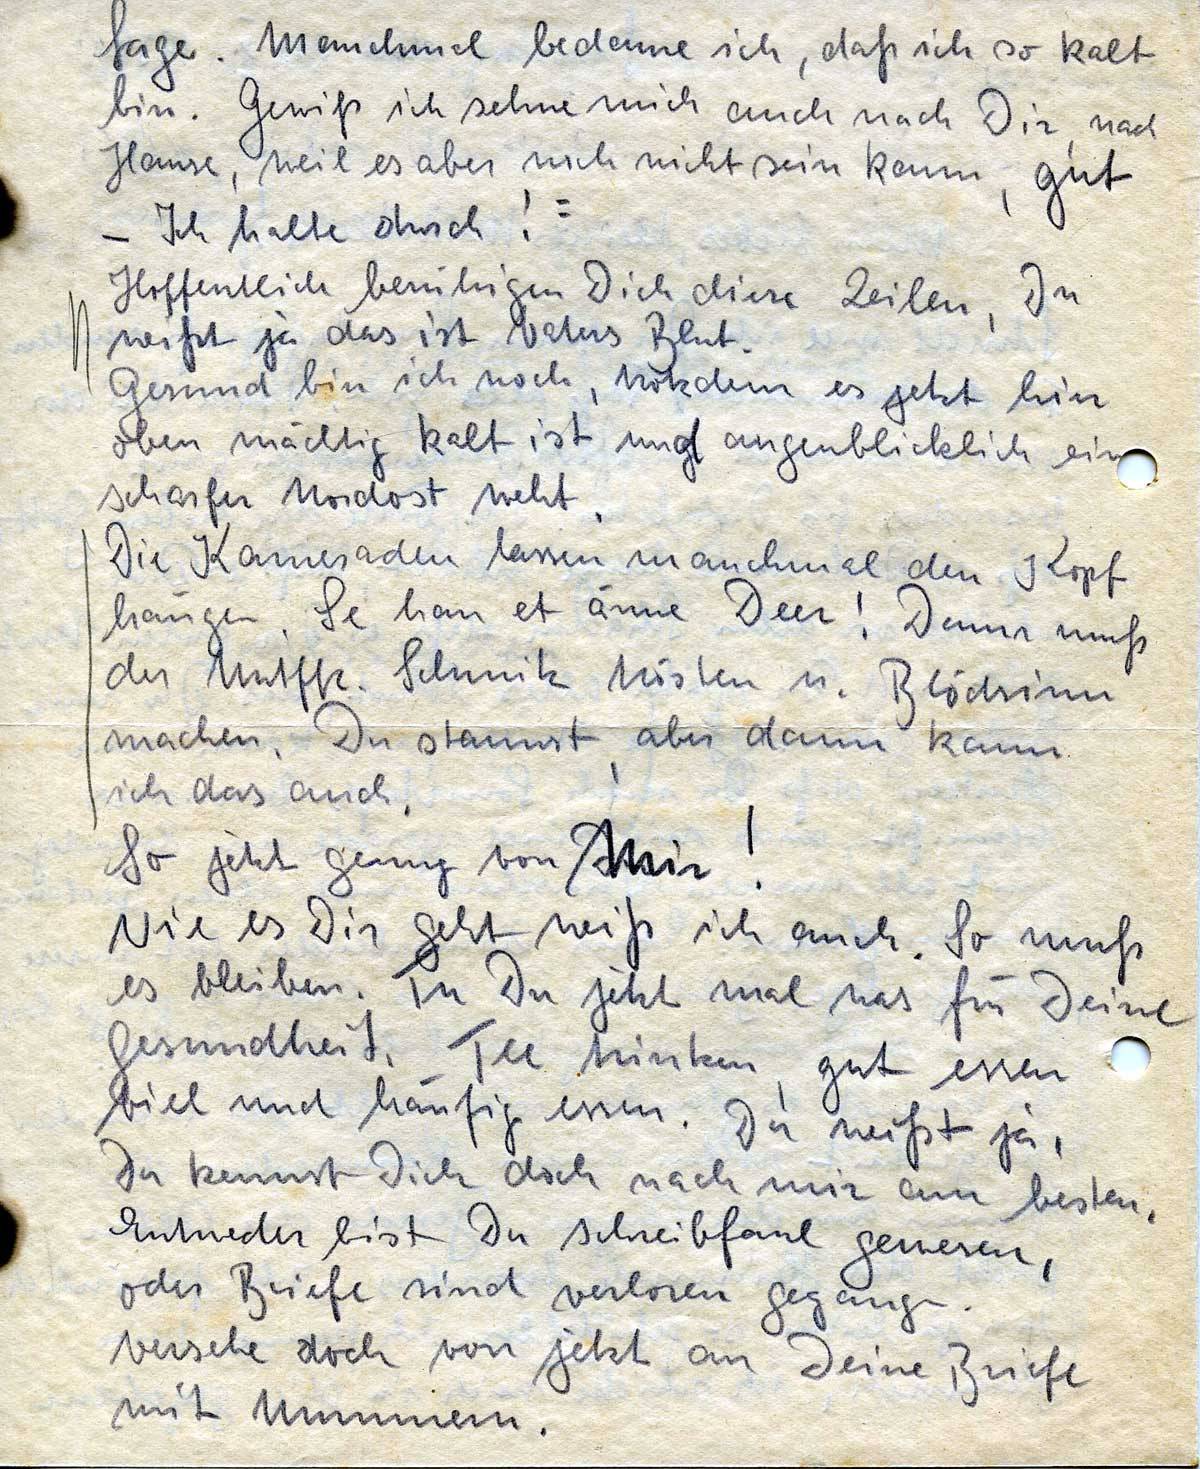 Sage. Manchmal bedaure ich, daß ich so kalt
bin. Gewiß ich sehne mich auch nach Dir, nach
Hause, weil es aber noch nicht sein kann, gut
– Ich halte durch!
Hoffentlich beruhigen Dich diese Zeilen, Du
weißt ja das ist Vaters Blut.
Gesund bin ich noch, trotzdem es jetzt hier
oben mächtig kalt ist und augenblicklich ein
scharfer Nordost weht.
Die Kameraden lassen manchmal den Kopf
hängen. Se han et ärme Deer! Dann muß
der Uffz. trösten u. Blödsinn
machen. Du staunst, aber dann kann
ich das auch.
So jetzt genug von Mir!
Wie es Dir geht weiß ich auch. So muß
es bleiben. Tu Du jetzt mal was für Deine
Gesundheit. Tee trinken, gut essen
viel und häufig essen. Du weißt ja,
Du kennst Dich doch nach mir am besten.
Entweder bist Du schreibfaul gewesen,
oder Briefe sind verloren gegang.
Versehe doch von jetzt an Deine Briefe
mit Nummern.